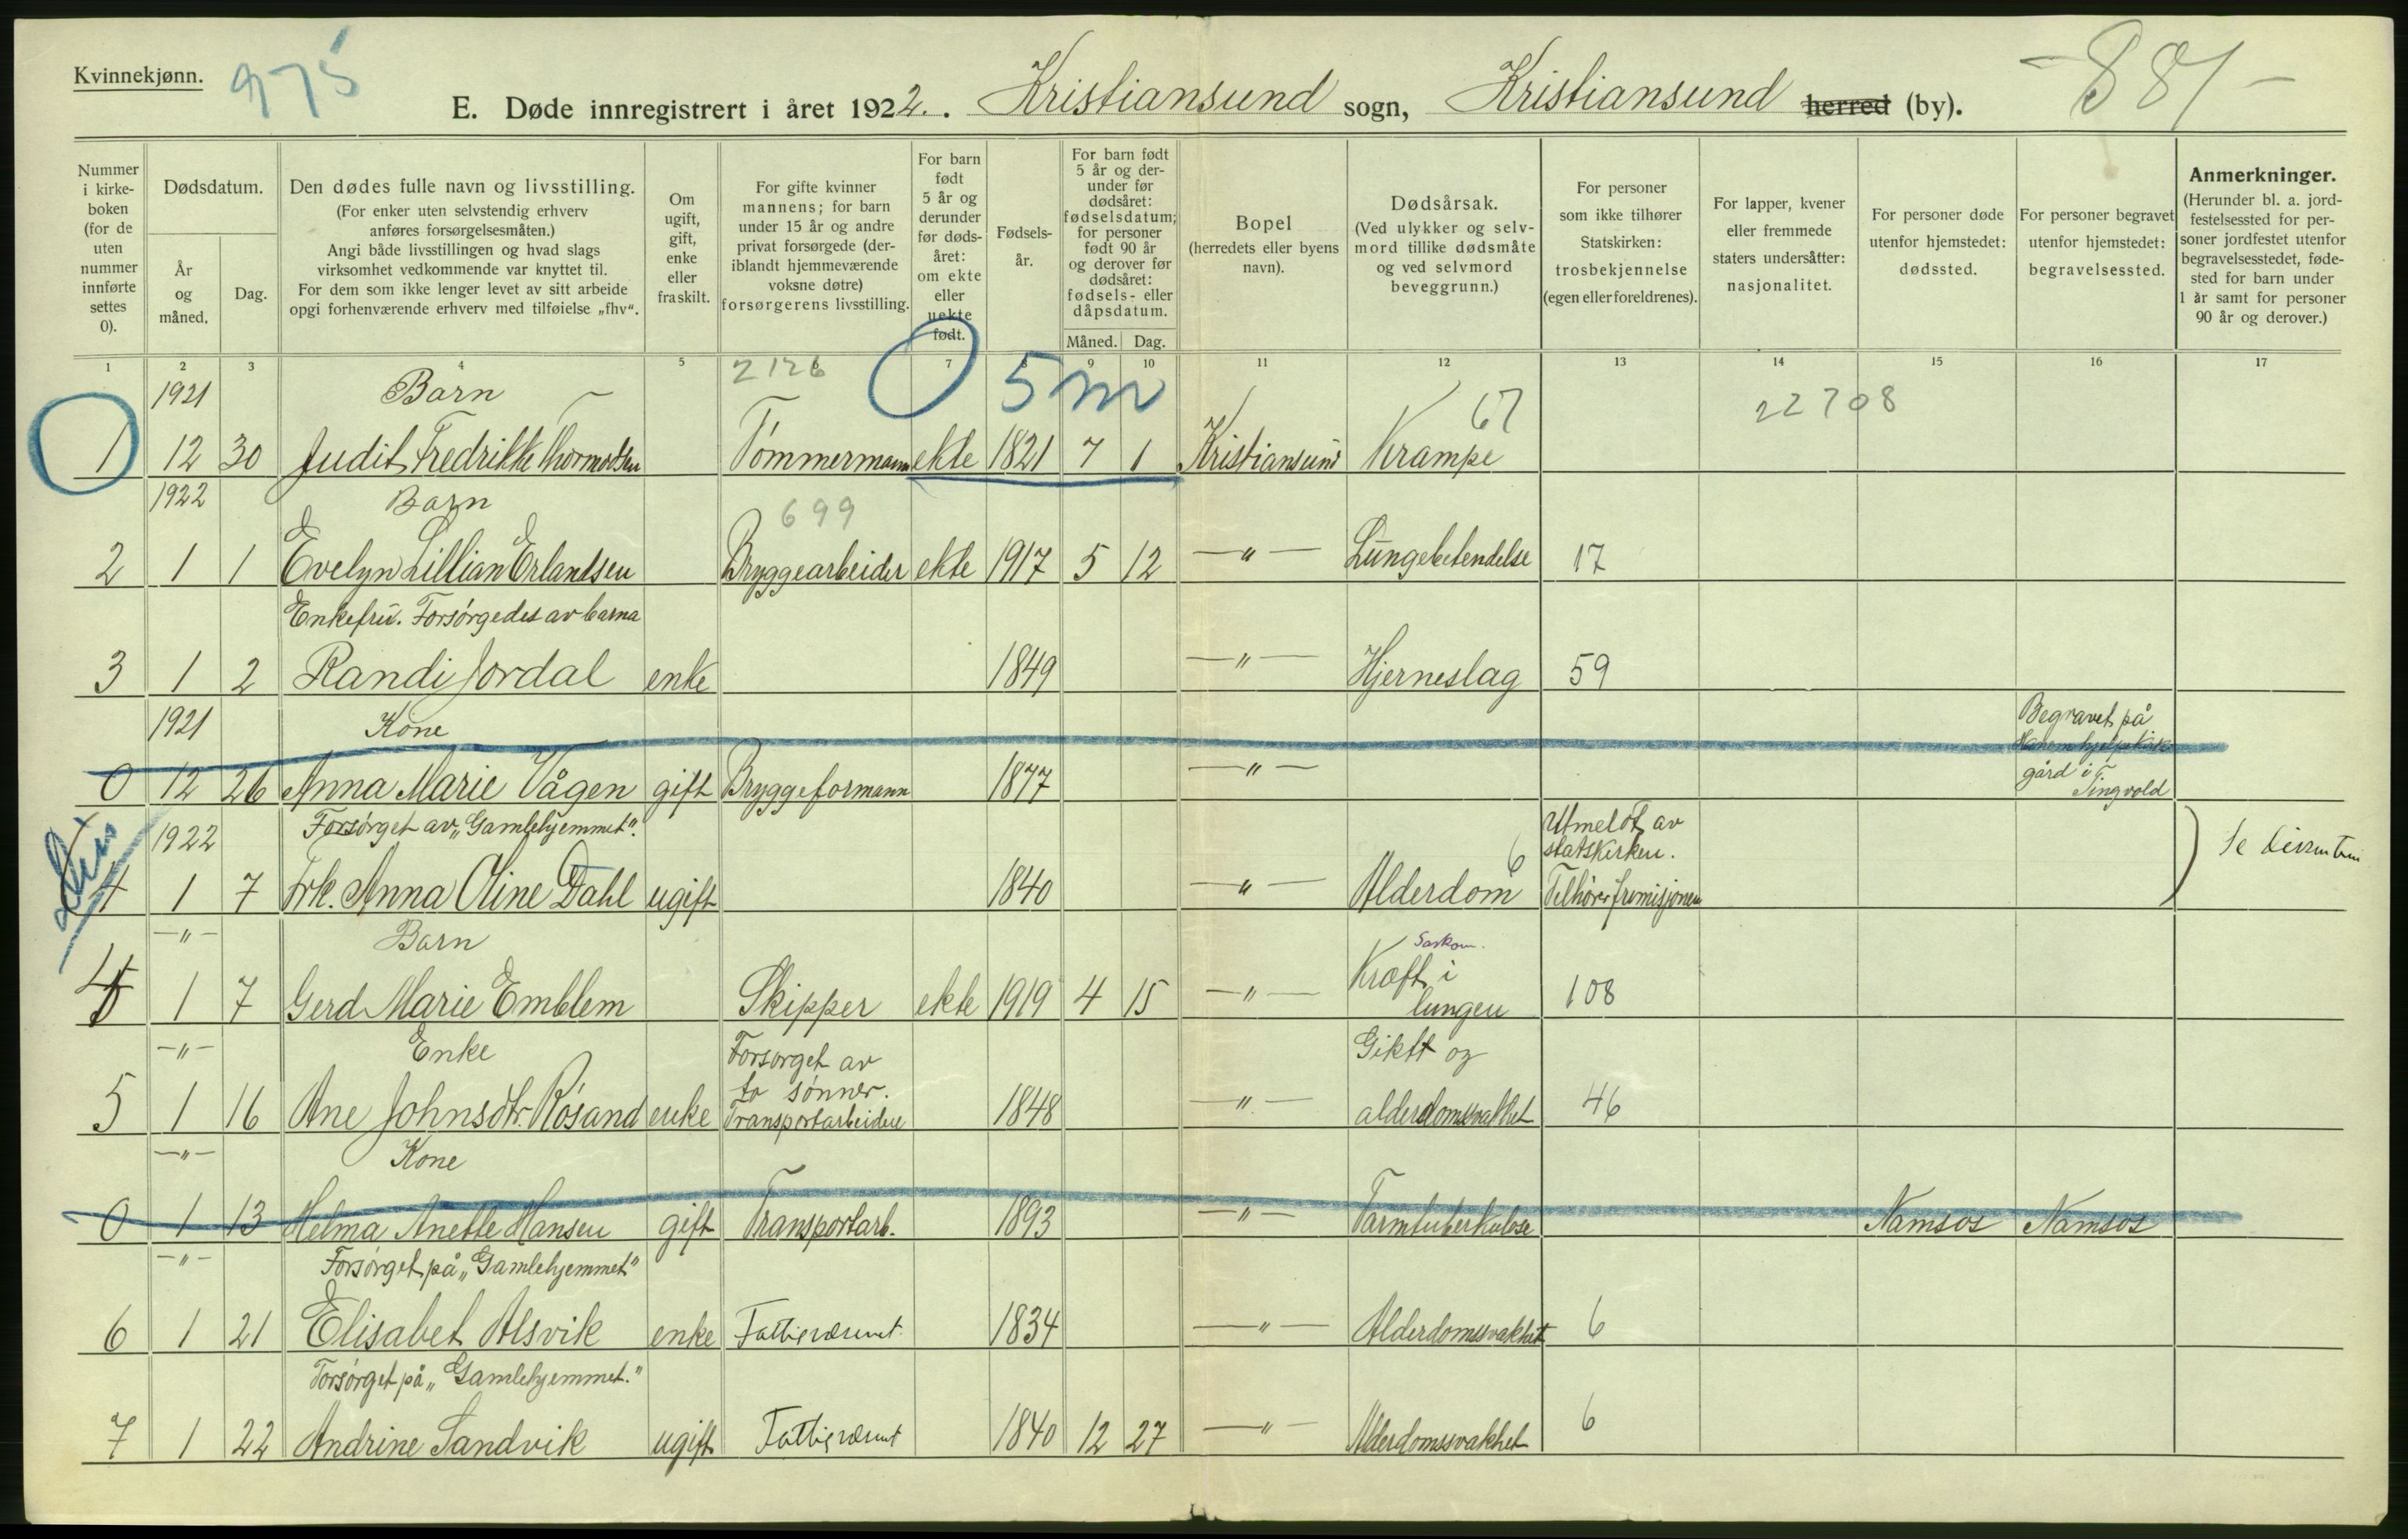 Kvinnekjønn.
975
E. Døde innregistrert i året 1922. Kristiansund sogn, Kristiansund herred (by).
- 881 -
Nummer i kirke-boken (for de uten nummer innførte settes 0).
Dødsdatum.
År og måned.
Dag.
Den dødes fulle navn og livsstilling.
(For enker uten selvstendig erhverv anføres forsørgelsesmåten.)
Angi både livsstillingen og hvad slags virksomhet vedkommende var knyttet til.
For dem som ikke lenger levet av sitt arbeide opgi forhenværende erhverv med tilføielse „fhv“.
Om ugift, gift, enke eller fraskilt.
For gifte kvinner mannens; for barn under 15 år og andre privat forsørgede (deriblandt hjemmeværende voksne døtre) forsørgerens livsstilling.
For barn født 5 år og derunder før døds-året: om ekte eller uekte født.
Fødsels-år.
For barn født 5 år og der-under før dødsåret: fødselsdatum; for personer født 90 år og derover før dødsåret: fødsels- eller dåpsdatum.
Måned. Dag.
Bopel
(herredets eller byens navn).
Dødsårsak.
(Ved ulykker og selv-mord tillike dødsmåte og ved selvmord beveggrunn.)
For personer som ikke tilhører Statskirken: trosbekjennelse (egen eller foreldrenes).
For lapper, kvener eller fremmede staters undersåtter: nasjonalitet.
For personer døde utenfor hjemstedet: dødssted.
For personer begravet utenfor hjemstedet: begravelsessted.
Anmerkninger.
(Herunder bl. a. jord-festelsessted for per-soner jordfestet utenfor begravelsesstedet, føde-sted for barn under 1 år samt for personer 90 år og derover.)
1 2 3 4 5 6 7 8 9 10 11 12 13 14 15 16 17
1921 Barn 2126 5 m 67 22708
1 12 30 Judit Fredrikke Thormodsen Tømmermann ekte 1821 7 1 Kristiansund Krampe
1922 Barn 699
2 1 1 Evelyn Lillian Erlandsen Bryggearbeider ekte 1917 5 12 —"— Lungebetendelse 17
Enkefru. Forsørgedes av barna
3 1 2 Randi Jordal enke 1849 —"— Hjerneslag 59
1921 Kone Begravet på
0 12 26 Anna Marie Vågen gift Bryggeformann 1877 —"— gård i Tingvold
1922 Forsørget av „Gamlehjemmet". Utmeldt av statskirken.
4 1 7 Frk. Anna Oline Dahl ugift 1840 —"— Alderdom 6 Tilhører frimisjonen Se
—"— Barn Sarkom.
4 1 7 Gerd Marie Emblem Skipper ekte 1919 4 15 —"— Kræft i lungen 108
—"— Enke Forsørget av to sønner. Giktt og
5 1 16 Ane Johnsdtr. Røsand enke Transportarbeidere 1848 —"— alderdomssvakhet 46
—"— Kone
0 1 13 Helma Anette Hansen gift Transportarb. 1893 —"— Tarmtuberkulose Namsos Namsos
—"— Forsørget på „Gamlehjemmet"
6 1 21 Elisabet Alsvik enke Fattigvæsenet. 1834 —"— Alderdomssvakhet 6
Forsørget på „Gamlehjemmet."
7 1 22 Andrine Sandvik ugift Fattigvæsnet 1840 12 27 —"— Alderdomssvakhet 6